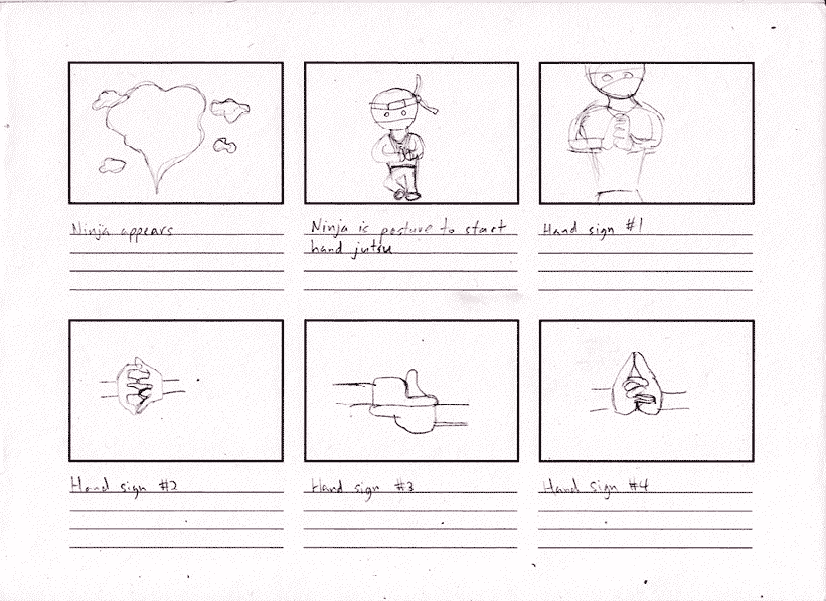 Ninja appears
Ninja is posture to start
hand jutsu
Hand sign #1
Hand sign #2
Hand sign #3
Hand sign #4